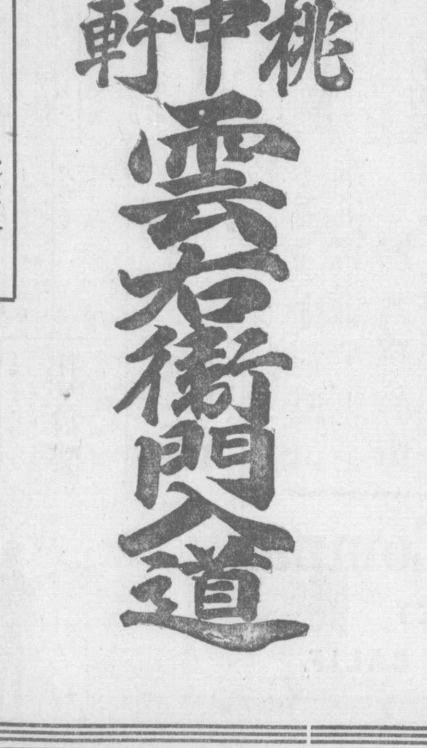 桃中軒
雲右衛門入道